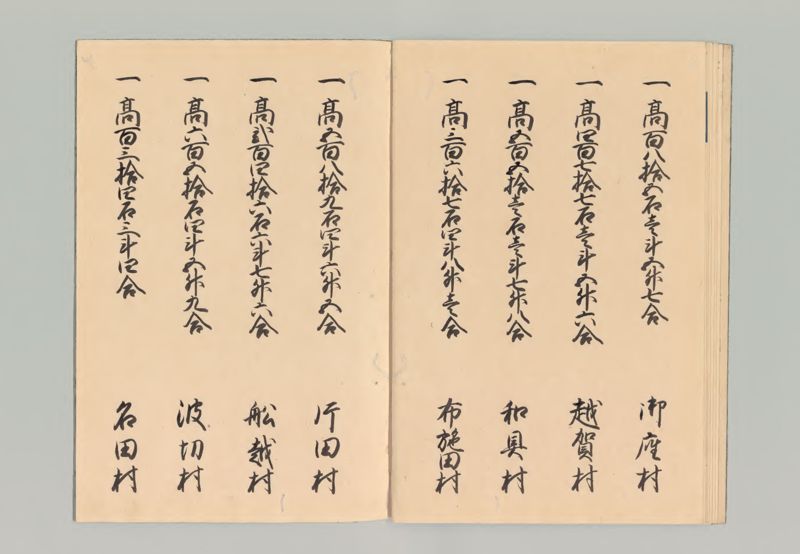 一 高百八拾五石壱斗五升七合 御座村
一 高四百七拾七石壱斗五升六合 越賀村
一 高五百五拾壱石壱斗七升八合 和具村
一 高三百六拾七石四斗八升壱合 布施田村
一 高五百八拾九石四斗六升五合 片田村
一 高弐百四拾六石六斗七升六合 船越村
一 高六百五拾石四斗五升九合 波切村
一 高百三拾四石三斗四合 名田村